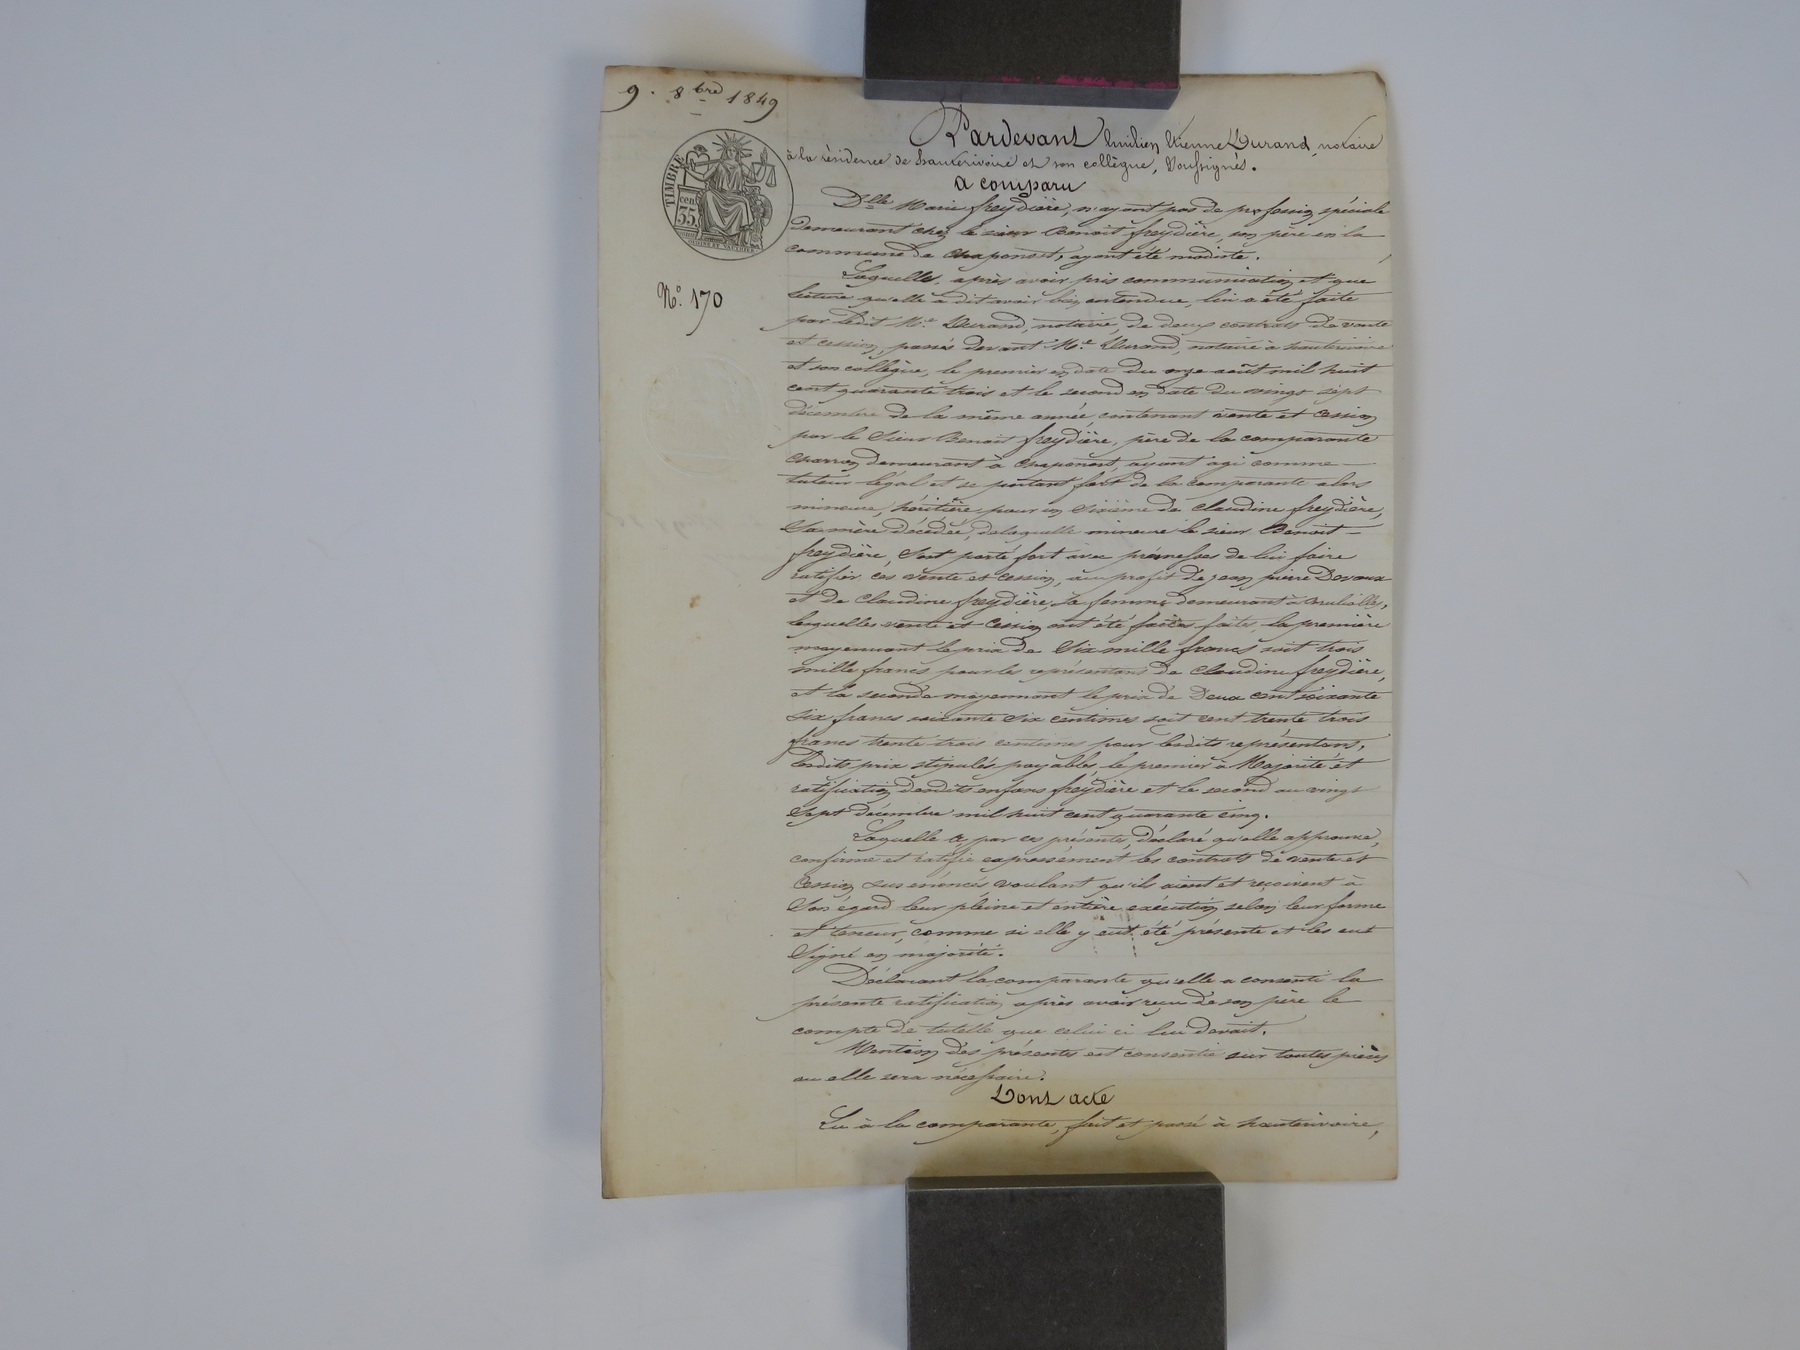 9. 8bre 1849
TIMBRE
cen.
35.
N° 170
Pardevant Emilien Etienne Durand, notaire
à la résidence de hauterivoire et son collègue, soussignés.
a comparu
Dlle Marie freydière, n'ayant pas de profession spéciale
demeurant chez le sieur Benoit freydière, son père en la
commune de Chaponost, ayant été modiste.
Laquelle, après avoir pris communication et que
lecture qu'elle a dit avoir bien entendue, lui a été faite
par ledit Me Durand, notaire, de deux contrats de vente
et cession, passés devant Me Durand, notaire à hauterivoire
et son collègue, le premier en date du onze août mil huit
cent quarante trois et le second en date du vingt sept
décembre de la même année, contenant vente et cession
par le sieur Benoit freydière, père de la comparante
charron demeurant à Chaponost, ayant agi comme
tuteur légal et se portant fort de la comparante alors
mineure, héritière pour un sixième de Claudine freydière,
sa mère décédée, delaquelle mineure le sieur Benoit
freydière, s'est porté fort avec promesses de lui faire
ratifier ces vente et cession, au profit de jean pierre Devaux
et de Claudine freydière, sa femme demeurant à
lesquelles vente et cession ont été faites faites, la première
moyennant le prix de six mille francs soit trois
mille francs pour les représentans de Claudine freydière,
et la seconde moyennant le prix de Deux cent soixante
six francs soixante six centimes soit cent trente trois
francs trente trois centimes pour lesdits représentans,
lesdits prix stipulés payables, le premier à Majorité et
ratification desdits enfans freydière et le second au vingt
sept décembre mil huit cent quarante cinq.
Laquelle a, par ces présentes, déclaré qu'elle approuve,
confirme et ratifie expressément les contrats de vente et
cession sus énoncés voulant qu'ils aient et reçoivent à
son égard leur pleine et entière exécution selon leur forme
et teneur, comme si elle y eut été présente et les eut
signé en majorité.
Déclarant la comparante qu'elle a consenti la
présente ratification après avoir reçu de son père le
compte de tutelle que celui ci lui devait.
Mention des présentes est consentie sur toutes pièces
ou elle sera nécessaire.
Dont acte
Lu à la comparante, fait et passé à hauterivoire,